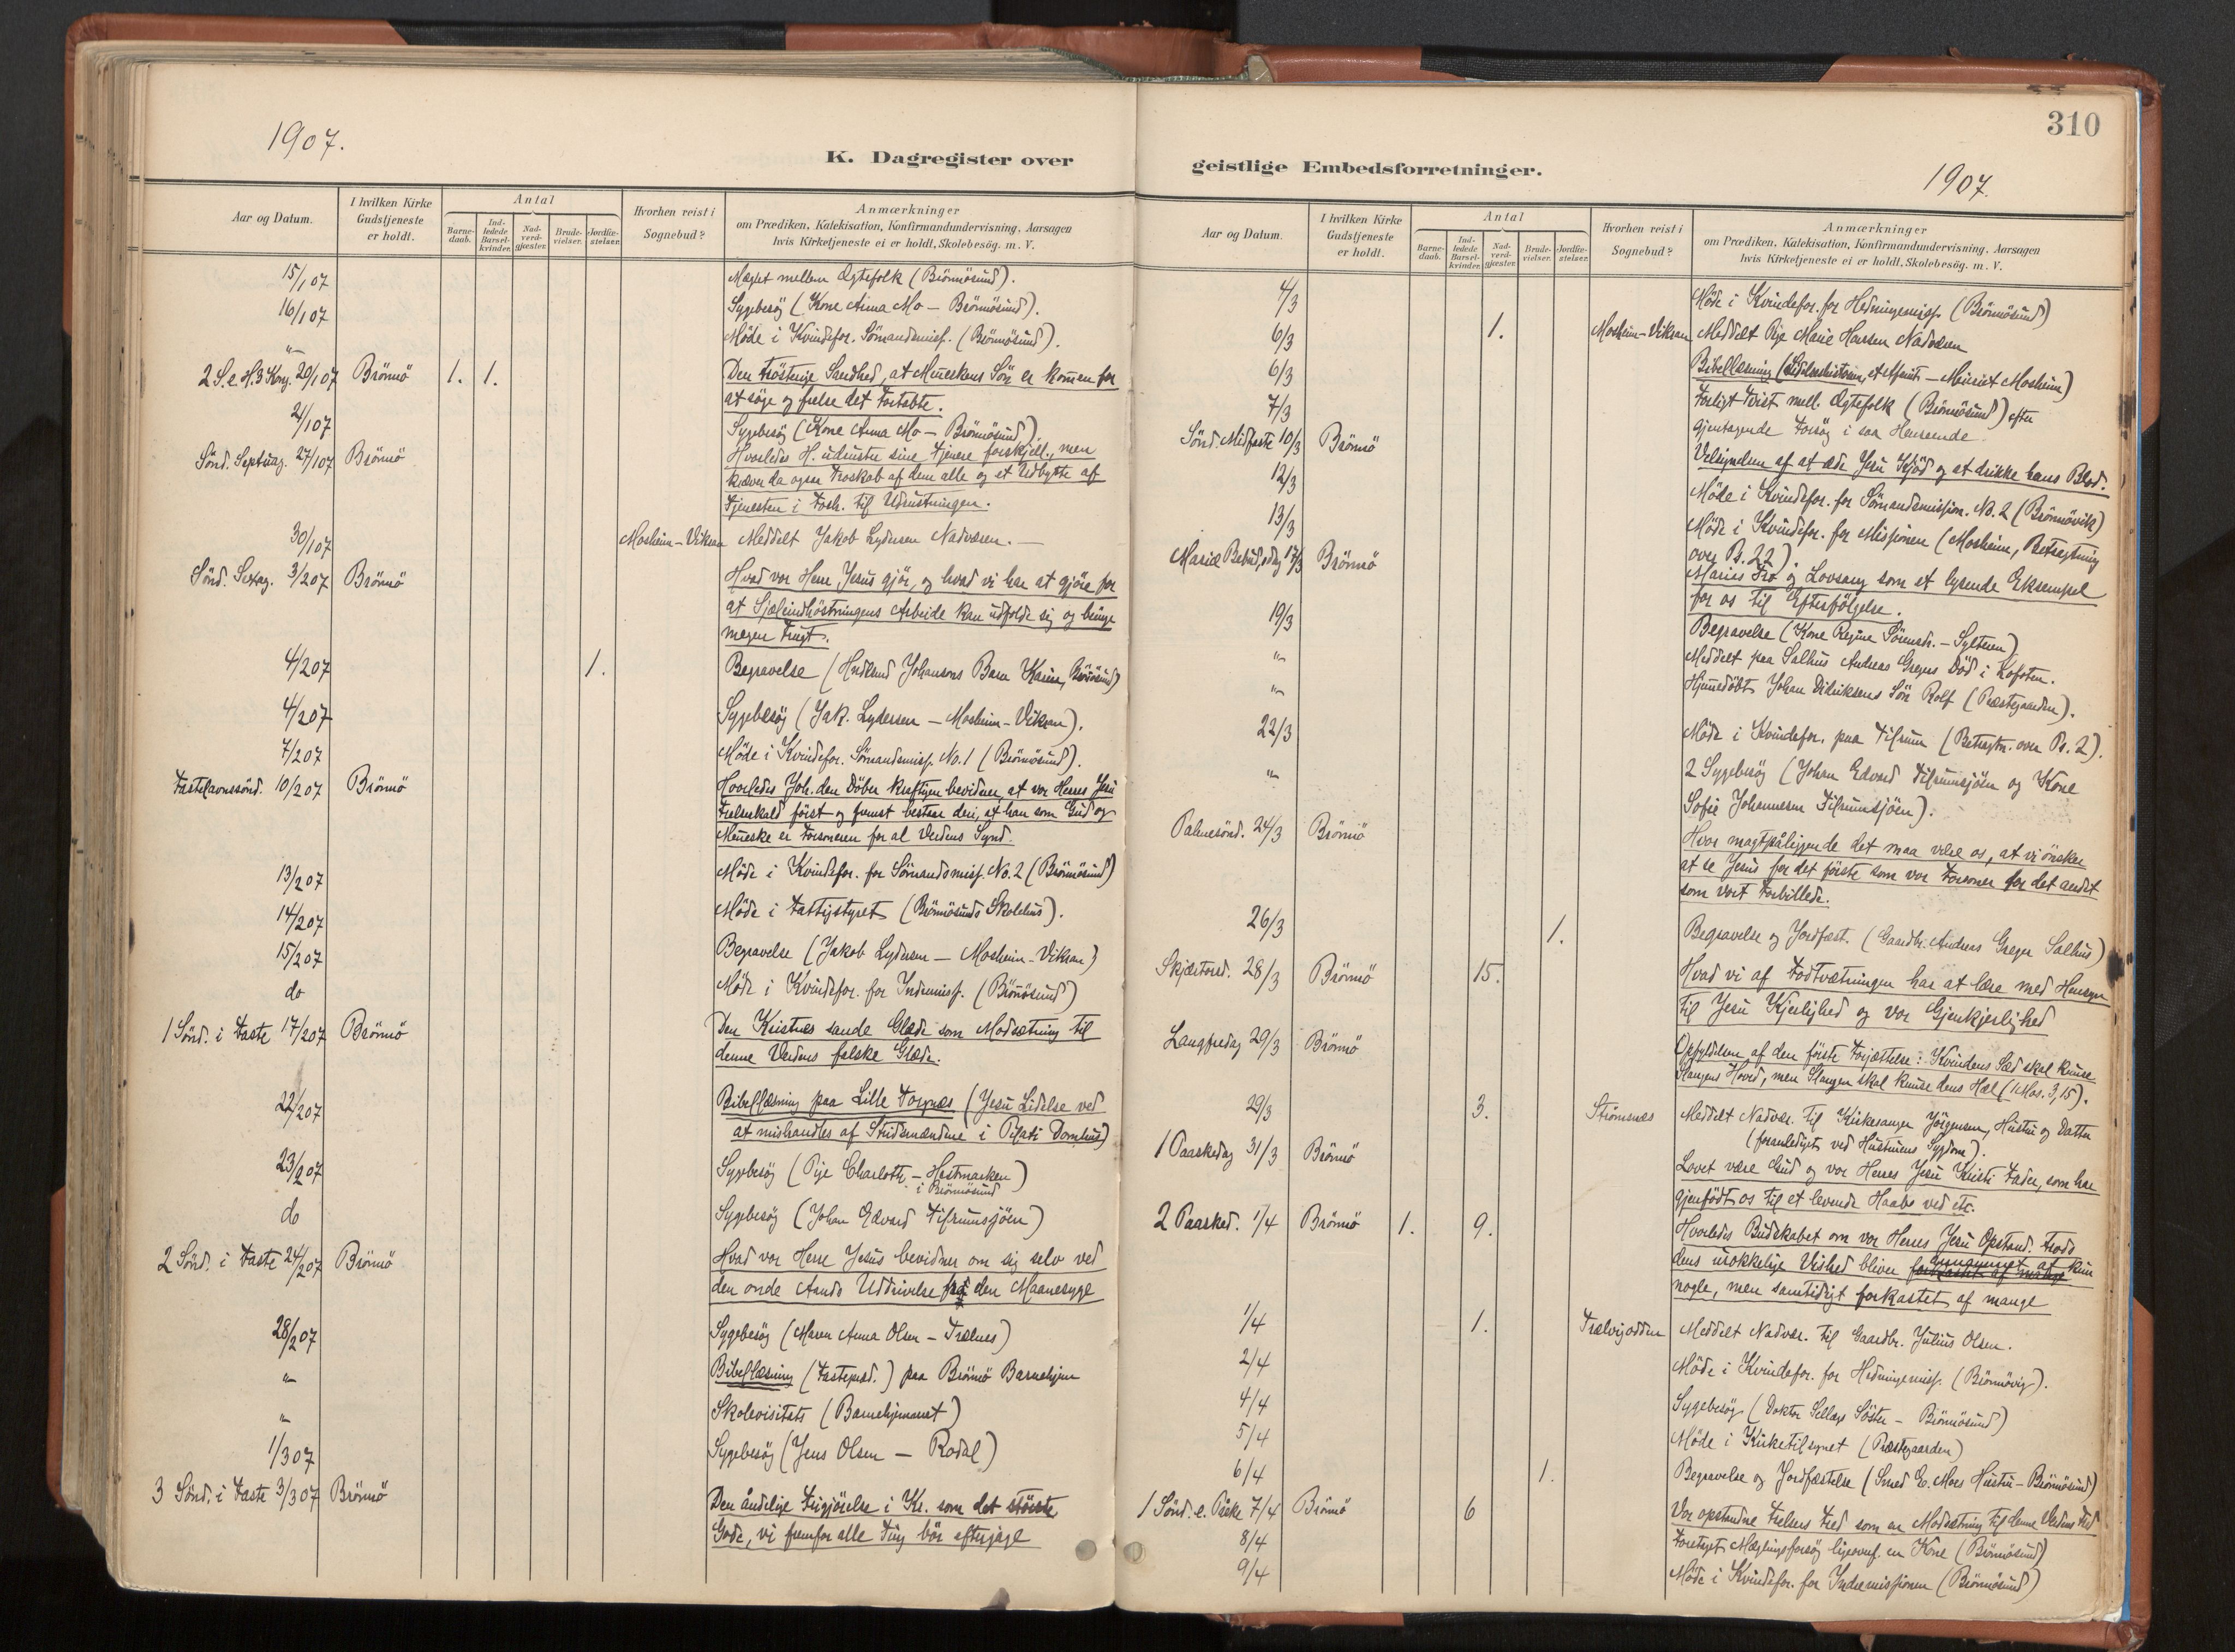 1907.
K. Dagregister over
Aar og Datum.
I hvilken Kirke Gudstjeneste er holdt.
Antal
Barnedaab.
Indledede Barselkvinder.
Nadverdgjæster.
Brudevielser.
Jordfæstelser.
Hvorhen reist i Sognebud?
Anmærkninger
om Prædiken, Katekisation, Konfirmandundervisning, Aarsagen
hvis Kirketjeneste ei er holdt, Skolebesög. m. V.
15/1 07 Mæglet mellem Ægtefolk (Brönnösund).
16/1 07 Sygebesög (Kone Anna Mo - Brönnösund).
" Möde i Kvindefor. Sömandsmiss. (Brönnösund).
2 S. e. H. 3 Kong. 20/1 07 Brönnö 1. 1. Den trösterige Sandhed, at Menneskens Sön er kommen for
at söge og frelse det Fortabte.
21/1 07 Sygebesög (Kone Anna Mo - Brönnösund)
Sönd. Septuag. 27/1 07 Brönnö Hvorledes H. udruster sine Tjenere forskjell., men
kræver da ogsaa Troskab af dem alle og et Udbytte af
Tjenesten i Forh. til Udrustningen.
30/1 07 Mosheim-Vikran Meddelt Jakob Lydersen Nadveren. —
Sönd. Sexag. 3/2 07 Brönnö Hvad vor Herre Jesus gjör, og hvad vi har at gjöre for
at Sjæleindhöstningens Arbeide kan udfolde sig og bringe
megen Frugt.
4/2 07 1. Begravelse (Johansens Barn Karine, Brönnösund)
4/2 07 Sygebesög (Jak. Lydersen - Mosheim-Vikran).
7/2 07 Möde i Kvindefor. Sömandsmiss. No. 1 (Brönnösund).
Fastelavnssönd. 10/2 07 Brönnö Hvorledes Joh. den Döber kraftigen bevidner, at vor Herres Jesu
Frelserkald först og fremst bestaar deri, at han som Gud og
Menneske er Forsoneren for al Verdens Synd.
13/2 07 Möde i Kvindefor. for Sömandsmiss. No. 2 (Brönnösund)
14/2 07 Möde i Fattigstyret (Brönnösunds Skolehus).
15/2 07 Begravelse (Jakob Lydersen - Mosheim-Vikran)
do Möde i Kvindefor. for Indremiss. (Brönnösund)
1 Sönd. i Faste 17/2 07 Brönnö Den Kristnes sande Glæde som Modsætning til
denne Verdens falske Glæde.
22/2 07 Bibellæsning paa Lille Torgnes (Jesu Lidelse ved
at mishandles af Stridsmændene i Pilati Domhus)
23/2 07 Sygebesög (Pige Charlotte - Hestmarken)
i Brönnösund
do Sygebesög (Johan Edvard Tilrumsjöen)
2 Sönd. i Faste 24/2 07 Brönnö Hvad vor Herre Jesus bevidner om sig selv ved
den onde Aands Uddrivelse fra den Maanesyge
28/2 07 Sygebesög (Maren Anna Olsen - Trælnes)
" Bibellæsning (Fastepræd.) paa Brönnö Barnehjem
" Skolevisitats (Barnehjemmet)
1/3 07 Sygebesög (Jens Olsen - Rodal)
3 Sönd. i Faste 3/3 07 Brönnö Den åndelige Frigjörelse i Kr. som det störste
Gode, vi fremfor alle Ting bör efterjage
310
1907.
geistlige Embedsforretninger.
Aar og Datum.
I hvilken Kirke Gudstjeneste er holdt.
Antal
Barnedaab.
Indledede Barselkvinder.
Nadverdgjæster.
Brudevielser.
Jordfæstelser.
Hvorhen reist i Sognebud?
Anmærkninger
om Prædiken, Katekisation, Konfirmandundervisning, Aarsagen
hvis Kirketjeneste ei er holdt, Skolebesög. m. V.
4/3 Möde i Kvindefor. for Hedningemiss. (Brönnösund)
6/3 1. Mosheim-Vikran Meddelt Pige Marie Hansen Nadveren
6/3 Bibellæsning (Lidelseshistorien, et Afsnit - Mosheim)
7/3 Forligt Tvist mell. Ægtefolk (Brönnösund) efter
gjentagende Forsög i saa Henseende.
Sönd. Midfaste 10/3 Brönnö Velsignelsen af at æde Jesu Kjöd og at drikke hans Blod.
12/3 Möde i Kvindefor. for Sömandsmission. No. 2 (Brönnövik)
13/3 Möde i Kvindefor. for Missionen (Mosheim, Betragtning
over Ps. 22).
Mariæ Bebud.dag 17/3 Brönnö Marias Tro og Lovsang som et lysende Eksempel
for os til Efterfölgelse.
19/3 Begravelse (Kone Regine Sörensdr. - Sylteren)
" Meddelt paa Salhus Andreas Gregers Död i Lofoten.
" Hjemmedöbt Johan Didriksens Sön Rolf (Præstegaarden).
22/3 Möde i Kvindefor. paa Tilrum (Betragtn. over Ps. 2).
" 2 Sygebesög (Johan Edvard Tilrumsjöen og Kone
Sofie Johannesen Tilrumsjöen).
Palmesönd. 24/3 Brönnö Hvor magtpåliggende det maa være os, at vi önsker
at se Jesus for det förste som vor Forsoner for det andet
som vort Forbillede.
26/3 1. Begravelse og Jordfæst. (Gaardbr. Andreas Greger Salhus)
Skjærtorsd. 28/3 Brönnö 15. Hvad vi af Fodtvætningen har at lære med Hensyn
til Jesu Kjærlighed og vor Gjenkjærlighed
Langfredag 29/3 Brönnö Opfyldelsen af den förste Forjættelse: Kvindens Sæd skal knuse
Slangens Hoved, men Slangen skal knuse dens Hæl (1 Mos. 3, 15).
29/3 3. Strömsnes Meddelt Nadver. til Kirkesanger Jörgensen, Hustru og Datter
(foranlediget ved Hustruens Sygdom).
1 Paaskedag 31/3 Brönnö Lovet være Gud og vor Herres Jesu Kristi Fader, som har
gjenfödt os til et levende Haab ved etc.
2 Paasked. 1/4 Brönnö 1. 9. Hvorledes Budskabet om vor Herres Jesu Opstand. trods
dens urokkelige Vished bliver annammet af kun
nogle, men samtidigt forkastet af mange
1/4 1. Trælvigodden Meddelt Nadver. til Gaardbr. Julius Olsen.
2/4 Möde i Kvindefor. for Hedningemiss. (Brönnövig).
4/4 Sygebesög (Doktor Söster - Brönnösund)
5/4 Möde i Kirketilsynet (Præstegaarden)
6/4 1. Begravelse og Jordfæstelse (Smed E. Moes Hustru - Brönnösund)
1 Sönd. e. Påske 7/4 Brönnö 6 Vor opstandne Frelsers Fred som en Modsætning til denne Verdens Fred
8/4 Foretaget Mæglingsforsög ligeoverf. en Kone (Brönnösund)
9/4 Möde i Kvindefor. for Indremissionen (Brönnösund)